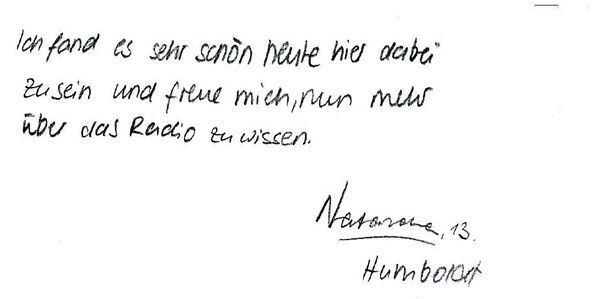 Ich fand es sehr schön heute hier dabei
zu sein und freue mich, nun mehr
über das Radio zu wissen.
Natascha, 13.
Humboldt